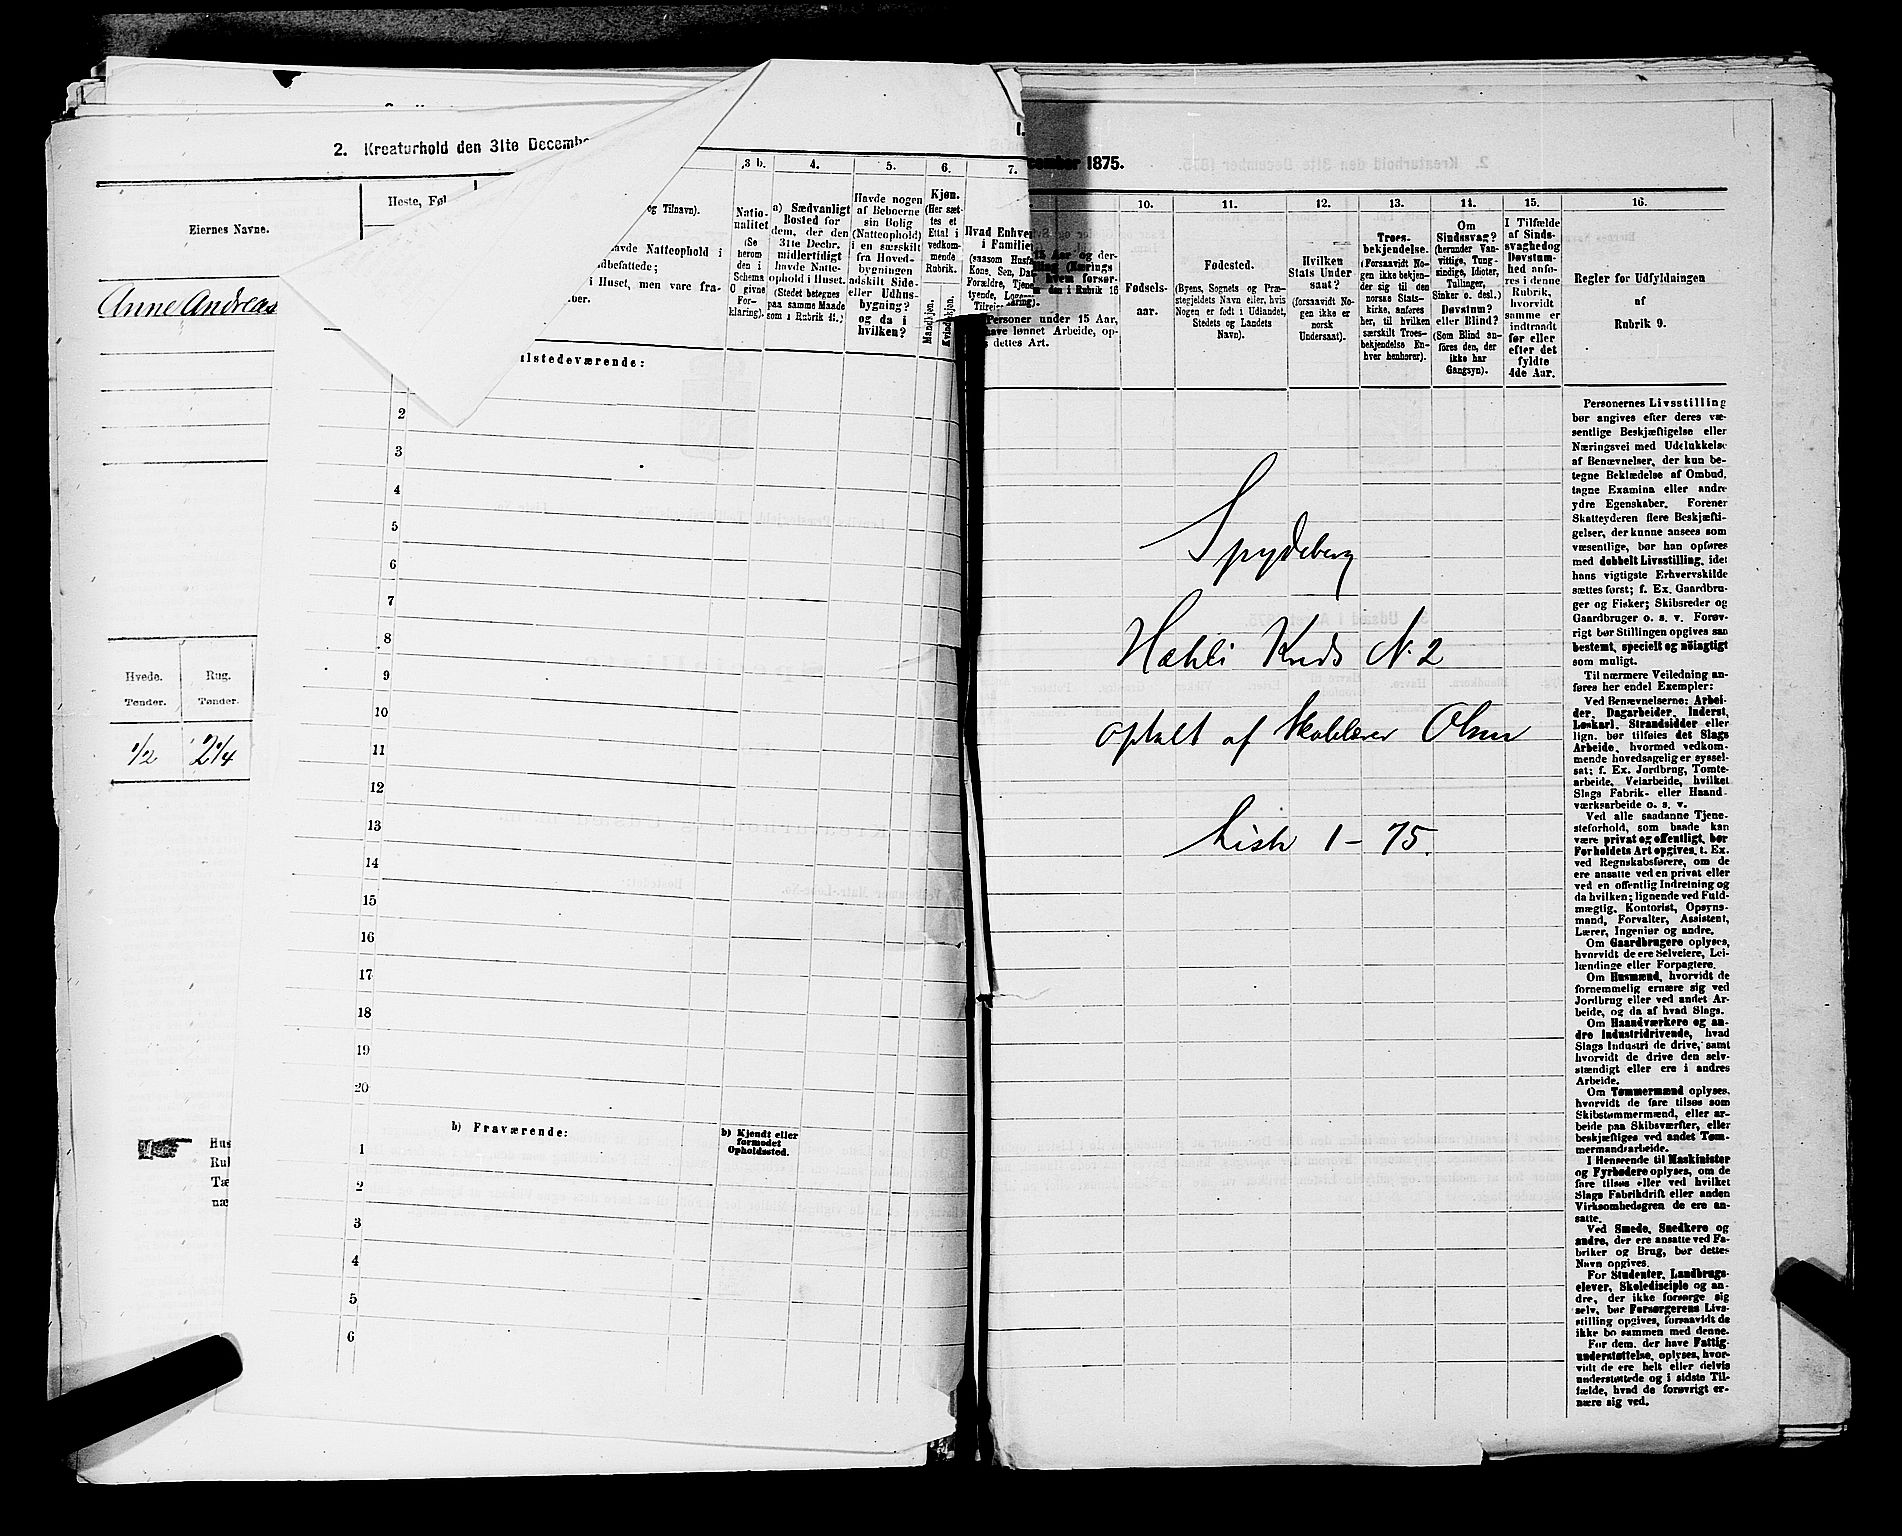 2. Kreaturhold den 31te Decembe
Eiernes Navne.
Heste, Føl
Anne Andreas
Hvede.
Rug.
Tønder.
Tønder.
1/2
2 1/4
Hus
Ru
Tæ
næ
og Tilnavn).
avde Natteophold i
dbefattede;
i Huset, men vare fra-
ber.
3 b.
Natio-
nalitet
(Se
herom
den i
Schema
O givne
For-
klaring).
4.
a) Sædvanligt
Bosted for
dem, der den
31te Decbr.
midlertidigt
havde Natte-
ophold i Huset.
(Stedet betegnes
paa samme Maade
som i Rubrik 11.)
5.
Havde nogen
af Beboerne
sin Bolig
(Natteophold)
i en særskilt
fra Hoved-
bygningen
adskilt Side-
eller Udhus-
bygning?
og da i
hvilken?
6.
Kjøn.
(Her sæt-
tes et
Ettal i
vedkom-
mende
Rubrik.
Mandkjøn.
Kvindekjøn.
7.
Hvad Enhver
i Familie
(saasom Husfa
Kone, Søn, Dat
Forældre, Tjene
tyende, Loge
Tilrei
ulstedeværende:
2
3
4
5
6
7
8
9
10
11
12
13
14
15
16
17
18
19
20
b) Fraværende:
b) Kjendt eller
formodet
Opholdssted.
1
2
3
4
5
6
I.
cember 1875.
15 Aar og der-
lling (Nærings
r hvem forsør-
den i Rubrik 16
aring).
Personer under 15 Aar,
have lønnet Arbeide, op-
s dettes Art.
10.
Fødsels-
aar.
11.
Fødested.
(Byens, Sognets og Præ-
stegjeldets Navn eller, hvis
Nogen er født i Udlandet,
Stedets og Landets
Navn).
12.
Hvilken
Stats Under
saat?
(forsaavidt No-
gen ikke er
norsk
Undersaat).
13.
Troes-
bekjendelse.
(Forsaavidt No-
gen ikke bekjen-
der sig til den
norske Stats-
kirke, anføres
her, til hvilken
særskilt Troes-
bekjendelse En-
hver henhører).
14.
Om
Sindssvag?
(herunder Van-
vittige, Tung-
sindige, Idioter,
Tullinger,
Sinker o. desl.)
Døvstum?
eller Blind?
(Som Blind an-
føres den, der
ikke har
Gangsyn).
15.
I Tilfælde
af Sinds-
svaghed og
Døvstum-
hed anfø-
res i denne
Rubrik,
hvorvidt
samme er
indtraadt
før eller
efter det
fyldte
4de Aar.
16.
Regler for Udfyldningen
af
Rubrik 9.
Spydeberg
Hæhli Kreds N. 2
optalt af Skolelærer Olsen
Liste 1 – 75.
Personernes Livsstilling
bør angives efter deres væ-
sentlige Beskjæftigelse eller
Næringsvei med Udelukkelse
af Benævnelser, der kun be-
tegne Beklædelse af Ombud,
tagne Examina eller andre
ydre Egenskaber. Forener
Skatteyderen flere Beskjæfti-
gelser, der kunne ansees som
væsentlige, bør han opføres
med dobbelt Livsstilling, idet
hans vigtigste Erhvervskilde
sættes først; f. Ex. Gaardbru-
ger og Fisker; Skibsreder og
Gaardbruger o. s. v. Forøv-
rigt bør Stillingen opgives saa
bestemt, specielt og nöiagtigt
som muligt.
Til nærmere Veiledning an-
føres her endel Exempler:
Ved Benævnelserne: Arbei-
der, Dagarbeider, Inderst,
Løskarl, Strandsidder eller
lign. bør tilføies det Slags
Arbeide, hvormed vedkom-
mende hovedsagelig er syssel-
sat; f. Ex. Jordbrug, Tomte-
arbeide, Veiarbeide, hvilket
Slags Fabrik- eller Haand-
værksarbeide o. s. v.
Ved alle saadanne Tjene-
steforhold, som baade kan
være privat og offentligt, bør
Forholdets Art opgives, t. Ex.
ved Regnskabsførere, om de
ere ansatte ved en privat eller
ved en offentlig Indretning og
da hvilken; lignende ved Fuld-
mægtig, Kontorist, Opsyns-
mand, Forvalter, Assistent,
Lærer, Ingeniør og andre.
Om Gaardbrugere oplyses,
hvorvidt de ere Selveiere, Lei-
lændinge eller Forpagtere.
Om Husmænd, hvorvidt de
fornemmelig ernære sig ved
Jordbrug eller ved andet Ar-
beide, og da af hvad Slags.
Om Haandværkere og an-
dre Industridrivende, hvad
Slags Industri de drive, samt
hvorvidt de drive den selv-
stændigt eller ere i andres
Arbeide.
Om Tømmermænd oplyses,
hvorvidt de fare tilsøs som
Skibstømmermænd, eller ar-
beide paa Skibsværfter, eller
beskjæftiges ved andet Tøm-
mermandsarbeide.
I Henseende til Maskinister
og Fyrbødere oplyses, om de
fare tilsøs eller ved hvilket
Slags Fabrikdrift eller anden
Virksomhedsgren de ere an-
satte.
Ved Smede, Snedkere og
andre, der ere ansatte ved Fa-
briker og Brug, bør dettes
Navn opgives.
For Studenter, Landbrugs-
elever, Skoledisciple og an-
dre, der ikke forsørge sig
selv, bør Forsørgerens Livs-
stilling opgives, forsaavidt de
ikke bo sammen med denne.
For dem, der have Fattig-
understøttelse, oplyses, hvor-
vidt de ere helt eller delvis
understøttede og i sidste Til-
fælde, hvad de forøvrigt er-
nære sig ved.